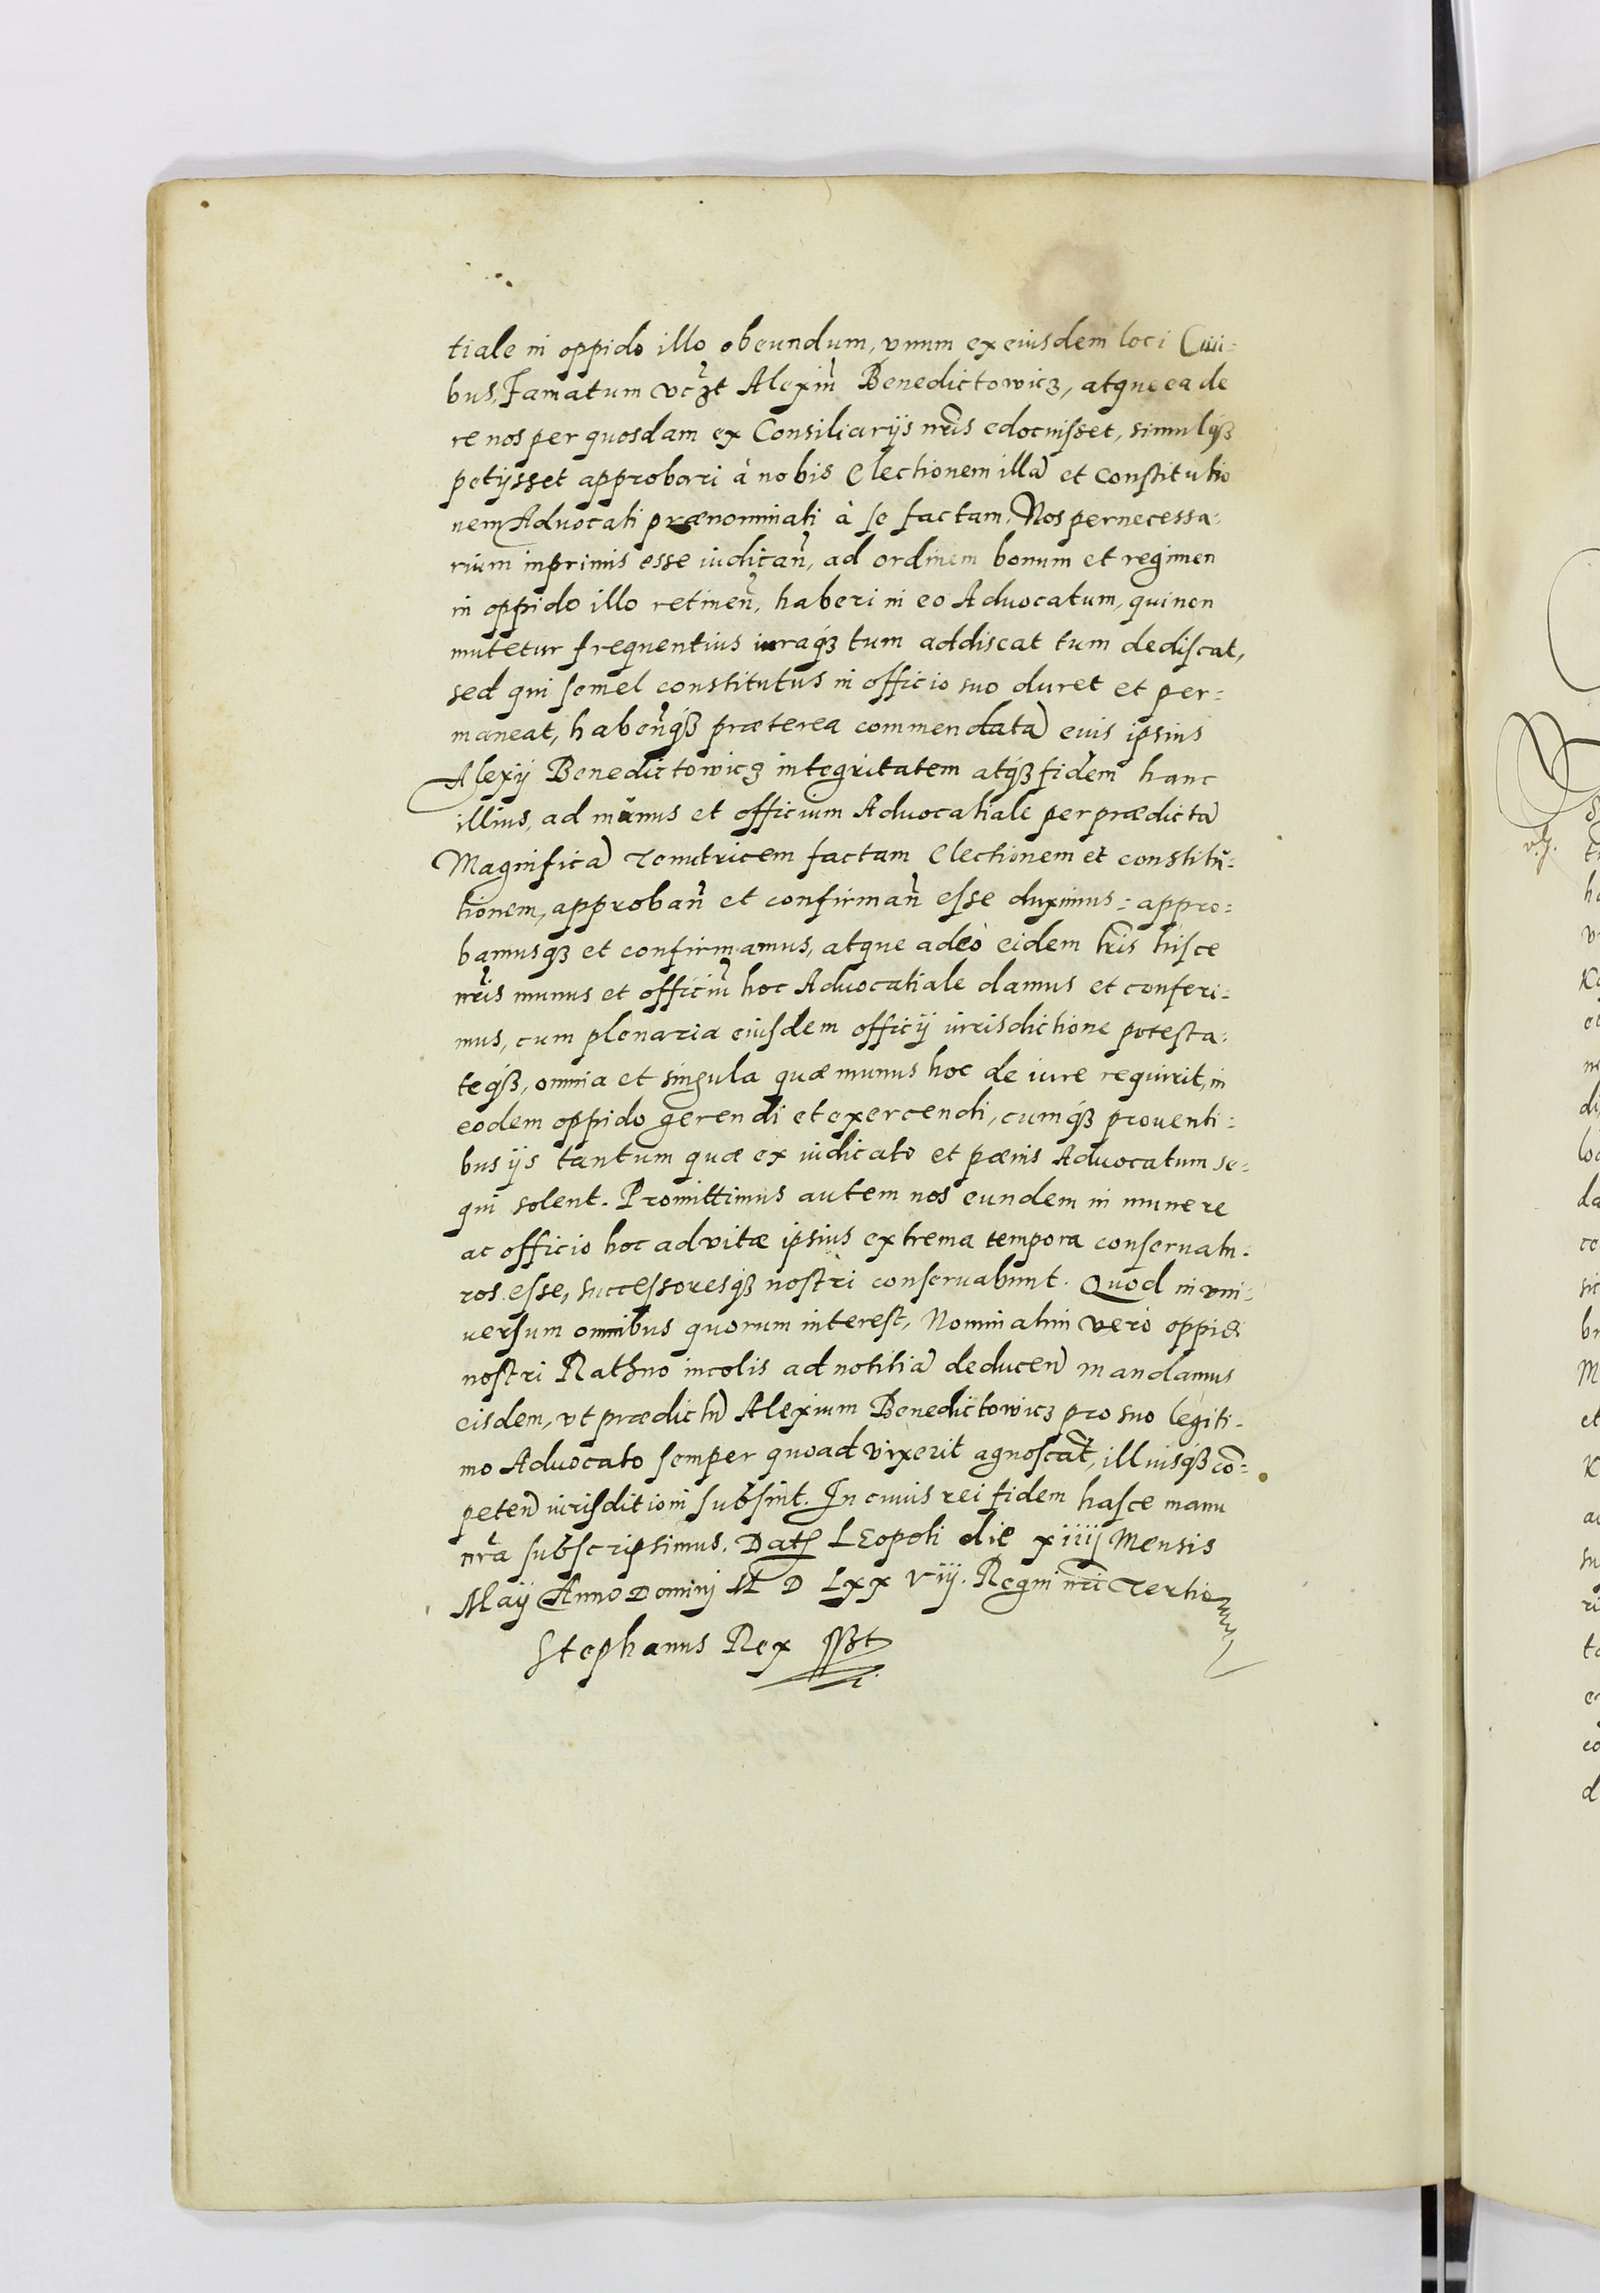 tiale in oppido illo obeundum, vnum ex eiusdem loci Ciui=
bus, Famatum vcȝt Alexiũ Benedictowicz, atque ea de
re nos per quosdam ex Consiliarijs nr̃is edocuisset, simulqȝ
petijsset approbari à nobis electionem illã et constitutio
nem Aduocati prænominati à se factam. Nos pernecessa=
rium inprimis esse iudicañ, ad ordinem bonum et regimen
in oppido illo retineñ, haberi in eo Aduocatum, qui non
mutetur frequentius iuraqȝ tum addiscat tum dediscat,
sed qui semel constitutus in officio suo duret et per=
maneat, habeñqȝ præterea commendatã euis ipsius
Alexij Benedictowicz integritatem atqȝ fidem hanc
illius, ad munus et officium Aduocatiale per prædictã
Magnificã Tenutricem factam electionem et constitu=
tionem, approbañ et confirmañ esse duximus: appro=
bamusqȝ et confirmamus, atque adeò eidem lr̃is hisce
nr̃is munus et officiũ hoc Aduocatiale damus et conferi=
mus, cum plenaria eiusdem officij iurisdictione potesta=
teqȝ, omnia et singula quæ munus hoc de iure requirit, in
eodem oppido gerendi et exercendi, cumqȝ prouenti=
bus ijs tantum quæ ex iudicato et pænis Aduocatum se=
qui solent. Promittimus autem nos eundem in munere
ac officio hoc ad vitæ ipsius extrema tempora conseruatu=
ros esse, successoresqȝ nostri conseruabunt. Quod in vni=
uersum omnibus quorum interest, Nominatim verò oppidi
nostri Rathno incolis ad notitiã deduceñ mandamus
eisdem, vt prædictũ Alexium Benedictowicz pro suo legiti=
mo Aduocato semper quoad vixerit agnoscãt, illiusqȝ cõ=
peteñ iurisditioni subsint. In cuius rei fidem hasce manu
nr̃a subscripsimus. Datȝ LEopoli die xiiij Mensis
Maij Anno Dominj M D Lxx Viij. Regni nr̃i Tertio
Stephanus Rex sszt